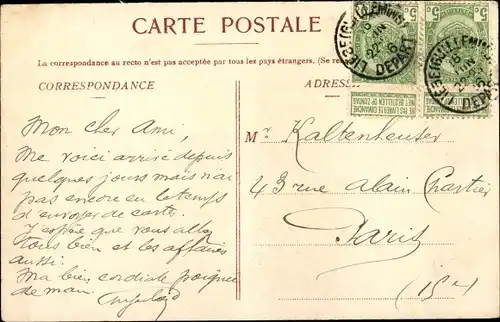 CARTE POSTALE
La correspondance au recto n'est pas acceptée par tous les pays étrangers. (Se re
CORRESPONDANCE
ADRESSE
5c 5c
LIEGE (GUILLEMINS)
DEPART
NE PAS LIVRER LE DIMANCHE
NIET BESTELLEN OP ZONDAG
Mon cher Ami,
Me voici arrivé depuis
quelques jours mais n'ai
pas encore eu le temps
d'envoyer de cartes.
J'espère que vous allez
tous bien et les affaires
aussi.
Ma bien cordiale poignée
de main.
Mr Kaltenheuser
43 rue Alain Chartier
Paris
15e